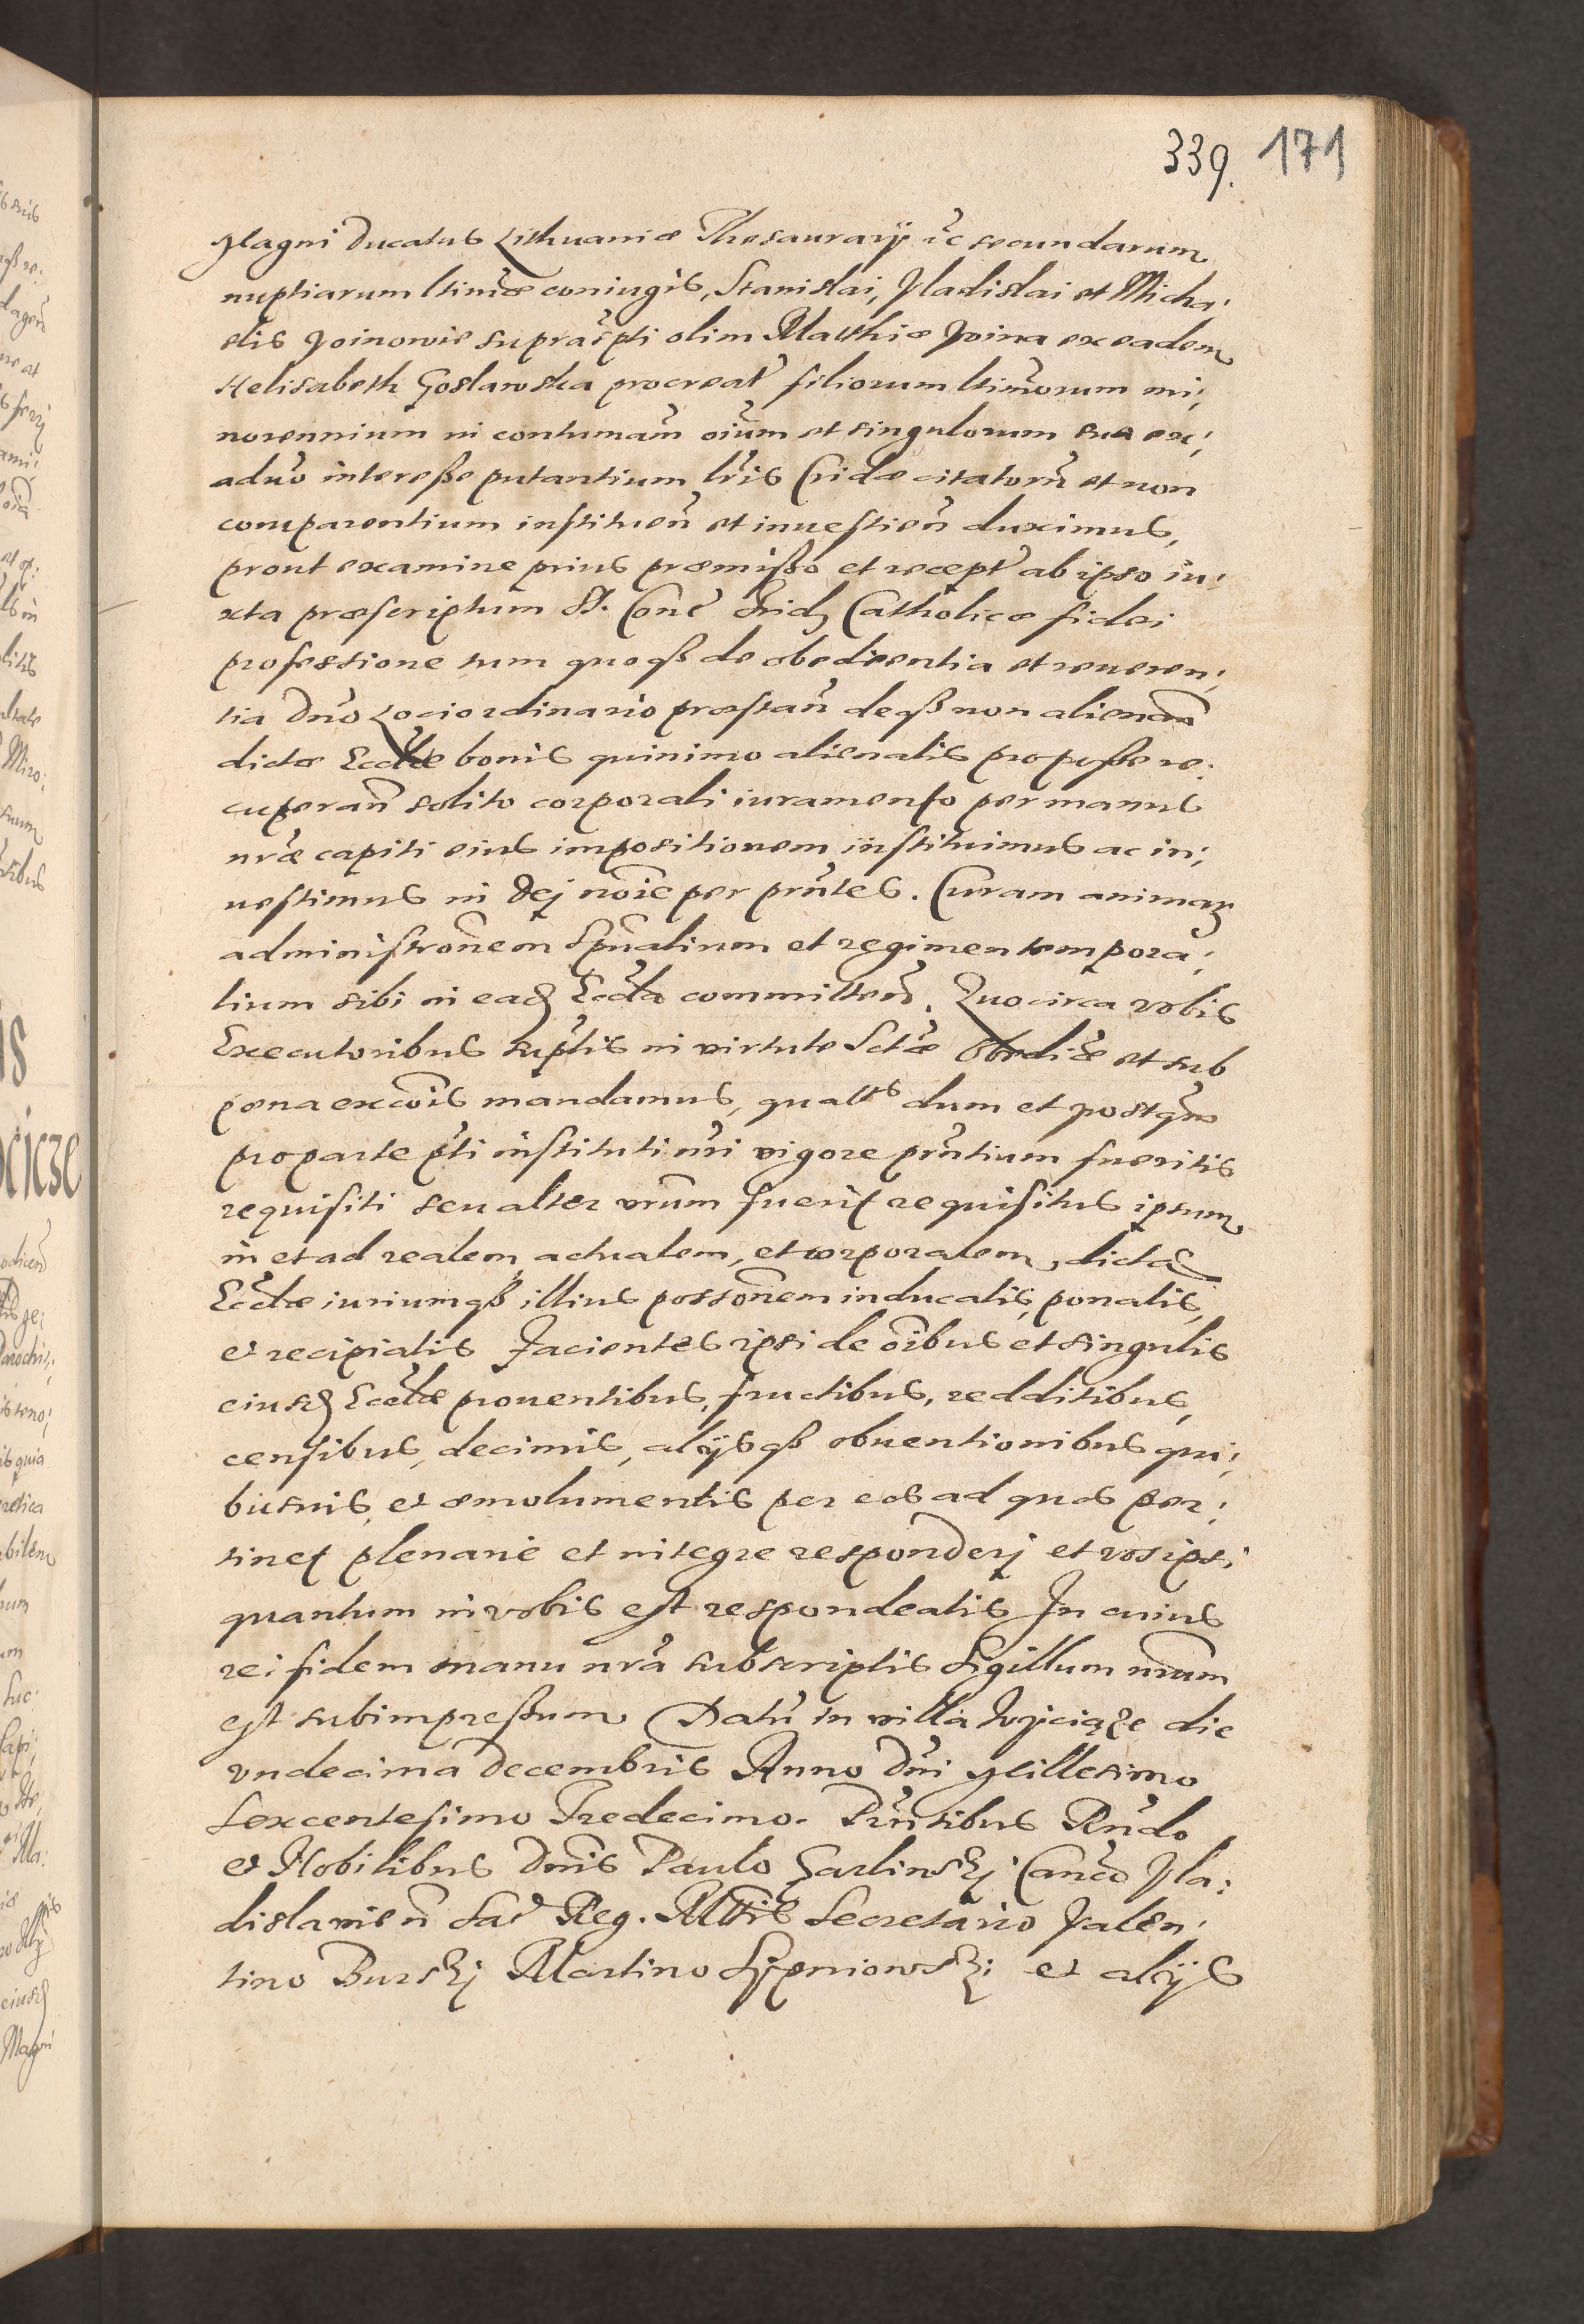 339. 171
Magni Ducatus Lithuaniæ Thesaurarÿ &c secundarum
nuptiarum ltimæ coniugis, Stanislai, Vladislai et Micha:
elis Voinowie suprascpti olim Matthiæ Voina ex eadem
Helisabeth Goslawska procreat filiorum ltimorum mi:
norennium in contumam oium et singulorum sua ex:
aduo interesse putantium lris Cridæ citatorum et non
comparentium instituen et inuestien duximus,
prout examine prius præmisso et recept ab ipso iu:
xta præscriptum St. Conc Trid Catholicæ fidei
professione tum quoqß de obedientia et reueren:
tia Dno Lociordinario præstan deqß non alienan
dictæ Ecclæ bonis quinimo alienatis pro posse re:
cuperan solito corporali iuramento per manus
nræ capiti eius impositionem instituimus ac in:
uestimus in Dej noie per pntes. Curam animar
administronem Spualium et regimen tempora:
lium sibi in ead Eccla committen. Quocirca vobis
Executoribus suptis in virtute Sctæ Obediæ et sub
pœna excois mandamus, quatts dum et postqm
pro parte pti instituti nri vigore pntium fueritis
requisiti seu alter vrum fuerit requisitus ipsum
in et ad realem actualem, et corporalem, dictæ
Ecclæ iuriumqß illius possonem inducatis, ponatis,
et recipiatis Facientes ipsi de oibus et singulis
eiusd Ecclæ prouentibus, fructibus, redditibus,
censibus, decimis, alÿsqß obuentionibus qui:
busuis, et æmolumentis per eos ad quos per:
tinet plenarie et integre responderj et vos ipsi
quantum in vobis est respondeatis In cuius
rei fidem manu nra subscriptis Sigillum nrum
est subimpressum Datum in villa Wyciąze die
vndecima Decembris Anno Dni Millesimo
Sexcentesimo Tredecimo. Pntibus Rndo
et Nobilibus Dnis Paulo Sarlinskj Canco Vla:
dislauien Sac Reg. Mttis Secretario Valen:
tino Burskj Martino Stępniowskj et alÿs